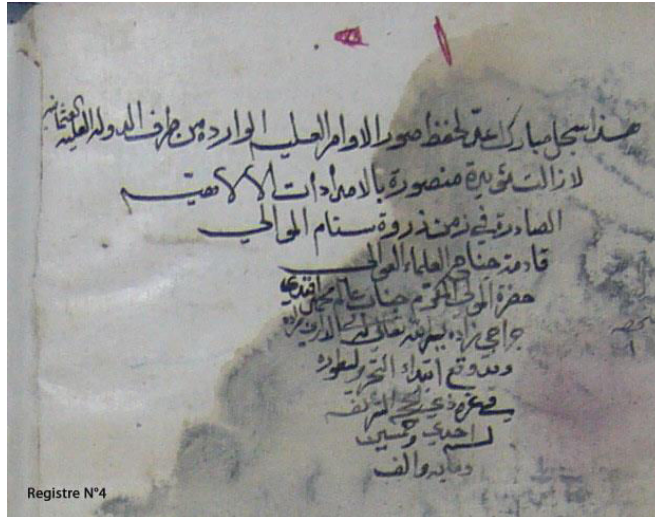 هذا سجل مبارك اعدّ لحفظ صور الاوامر العليه الواردة من طرف الدوله العليه العثمانيه
لا زالت مؤيدة منصورة بالامدادات الالاهيه
الصادرة في زمن ذروة سنام الموالي
قادمة جناحي العلماء العوالي
حضرة المولى المكرم جناب محمد افندي
زاده يسر الله تعالى له
وقد وقع ابتداء التحرير
في غرة ذي الحجة الشريفه
لسنه احدى وخمسين
ومايه والف
Registre N°4